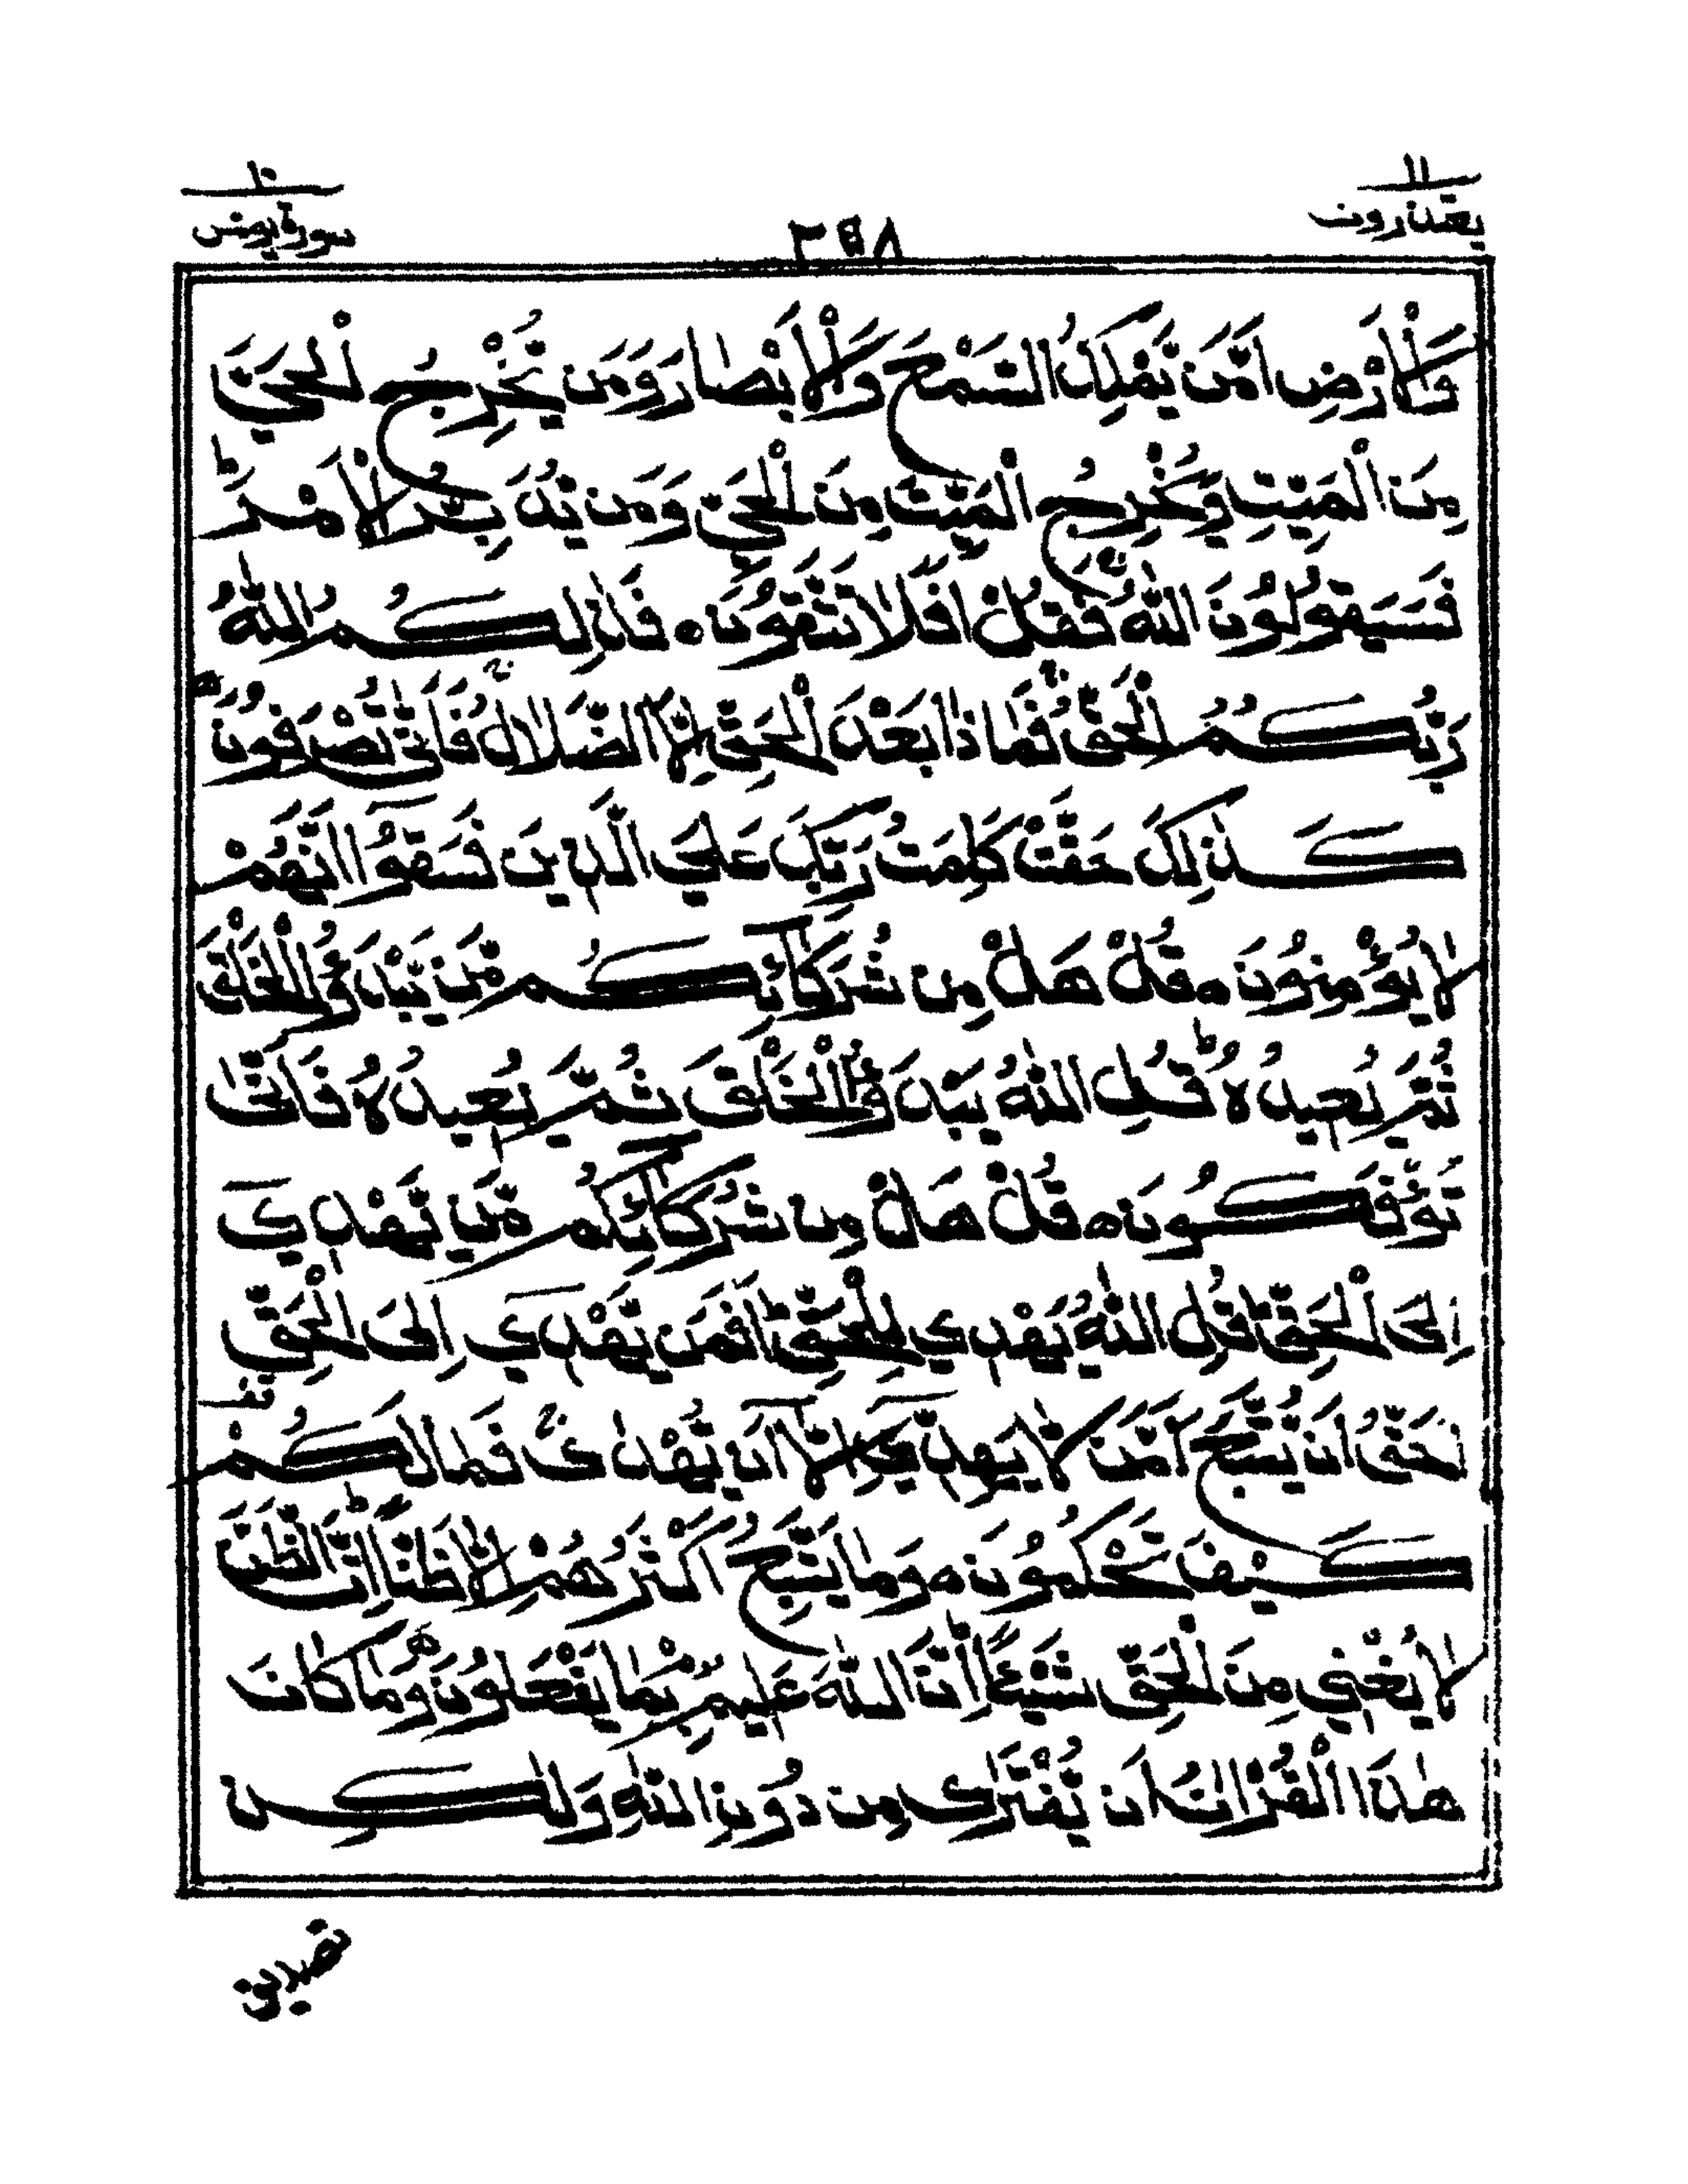 ١١
يعتذرون
٢٥٨
١٠
سورة يونس
وَالْاَرْضِ اَمَّنْ يَّمْلِكُ السَّمْعَ وَالْاَبْصَارَ وَمَنْ يُّخْرِجُ الْحَيَّ
مِنَ الْمَيِّتِ وَيُخْرِجُ الْمَيِّتَ مِنَ الْحَيِّ وَمَنْ يُّدَبِّرُ الْاَمْرَ ط
فَسَيَقُوْلُوْنَ اللّٰهُ ج فَقُلْ اَفَلَا تَتَّقُوْنَ ه فَذٰلِكُمُ اللّٰهُ
رَبُّكُمُ الْحَقُّ ج فَمَاذَا بَعْدَ الْحَقِّ اِلَّا الضَّلٰلُ ج فَاَنّٰى تُصْرَفُوْنَ ه
كَذٰلِكَ حَقَّتْ كَلِمَتُ رَبِّكَ عَلَى الَّذِيْنَ فَسَقُوْٓا اَنَّهُمْ
لَا يُؤْمِنُوْنَ ه قُلْ هَلْ مِنْ شُرَكَآئِكُمْ مَّنْ يَّبْدَؤُا الْخَلْقَ
ثُمَّ يُعِيْدُهٗ ط قُلِ اللّٰهُ يَبْدَؤُا الْخَلْقَ ثُمَّ يُعِيْدُهٗ فَاَنّٰى
تُؤْفَكُوْنَ ه قُلْ هَلْ مِنْ شُرَكَآئِكُمْ مَّنْ يَّهْدِيْٓ
اِلَى الْحَقِّ ط قُلِ اللّٰهُ يَهْدِيْ لِلْحَقِّ ط اَفَمَنْ يَّهْدِيْٓ اِلَى الْحَقِّ
اَحَقُّ اَنْ يُّتَّبَعَ اَمَّنْ لَّا يَهِدِّيْٓ اِلَّآ اَنْ يُّهْدٰى ج فَمَا لَكُمْ
كَيْفَ تَحْكُمُوْنَ ه وَمَا يَتَّبِعُ اَكْثَرُهُمْ اِلَّا ظَنًّا ط اِنَّ الظَّنَّ
لَا يُغْنِيْ مِنَ الْحَقِّ شَيْئًا ط اِنَّ اللّٰهَ عَلِيْمٌ بِمَا يَفْعَلُوْنَ ه وَمَا كَانَ
هٰذَا الْقُرْاٰنُ اَنْ يُّفْتَرٰى مِنْ دُوْنِ اللّٰهِ وَلٰكِنْ
تصديق